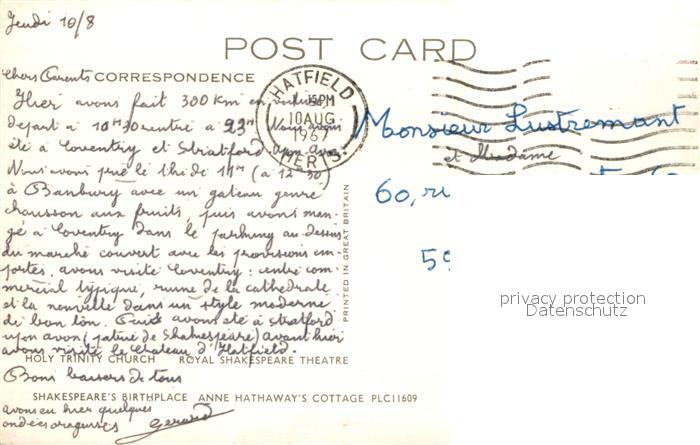 Jeudi 10/8
POST CARD
Chers Parents CORRESPONDENCE
Hier avons fait 300 Km en voiture
HATFIELD
15 PM
10 AUG
1967
HERTS.
départ à 10H30 rentré à 23H Nous avons
été à Coventry et Stratford upon avon
Nous avons pris le thé de 11H (à 12H30)
à Banbury avec un gateau genre
chausson aux fruits, puis avons man-
gé à Coventry dans le parking au dessus
du marché couvert avec les provisions em-
portés, avons visité Coventry: centre com-
mercial typique, ruine de la cathedrale
et la nouvelle dans un style moderne
de bon ton. Puis avons été à Stratford
upon avon (patrie de Shakespeare) avant hier
avons visité le chateau d'Hatfield.
HOLY TRINITY CHURCH ROYAL SHAKESPEARE THEATRE
Bons baisers de tous
SHAKESPEARE'S BIRTHPLACE ANNE HATHAWAY'S COTTAGE PLC11609
avons eu hier quelques
ondées orageuses Gerard
PRINTED IN GREAT BRITAIN
Monsieur Lustremant
et Madame
60, ru
59
privacy protection
Datenschutz